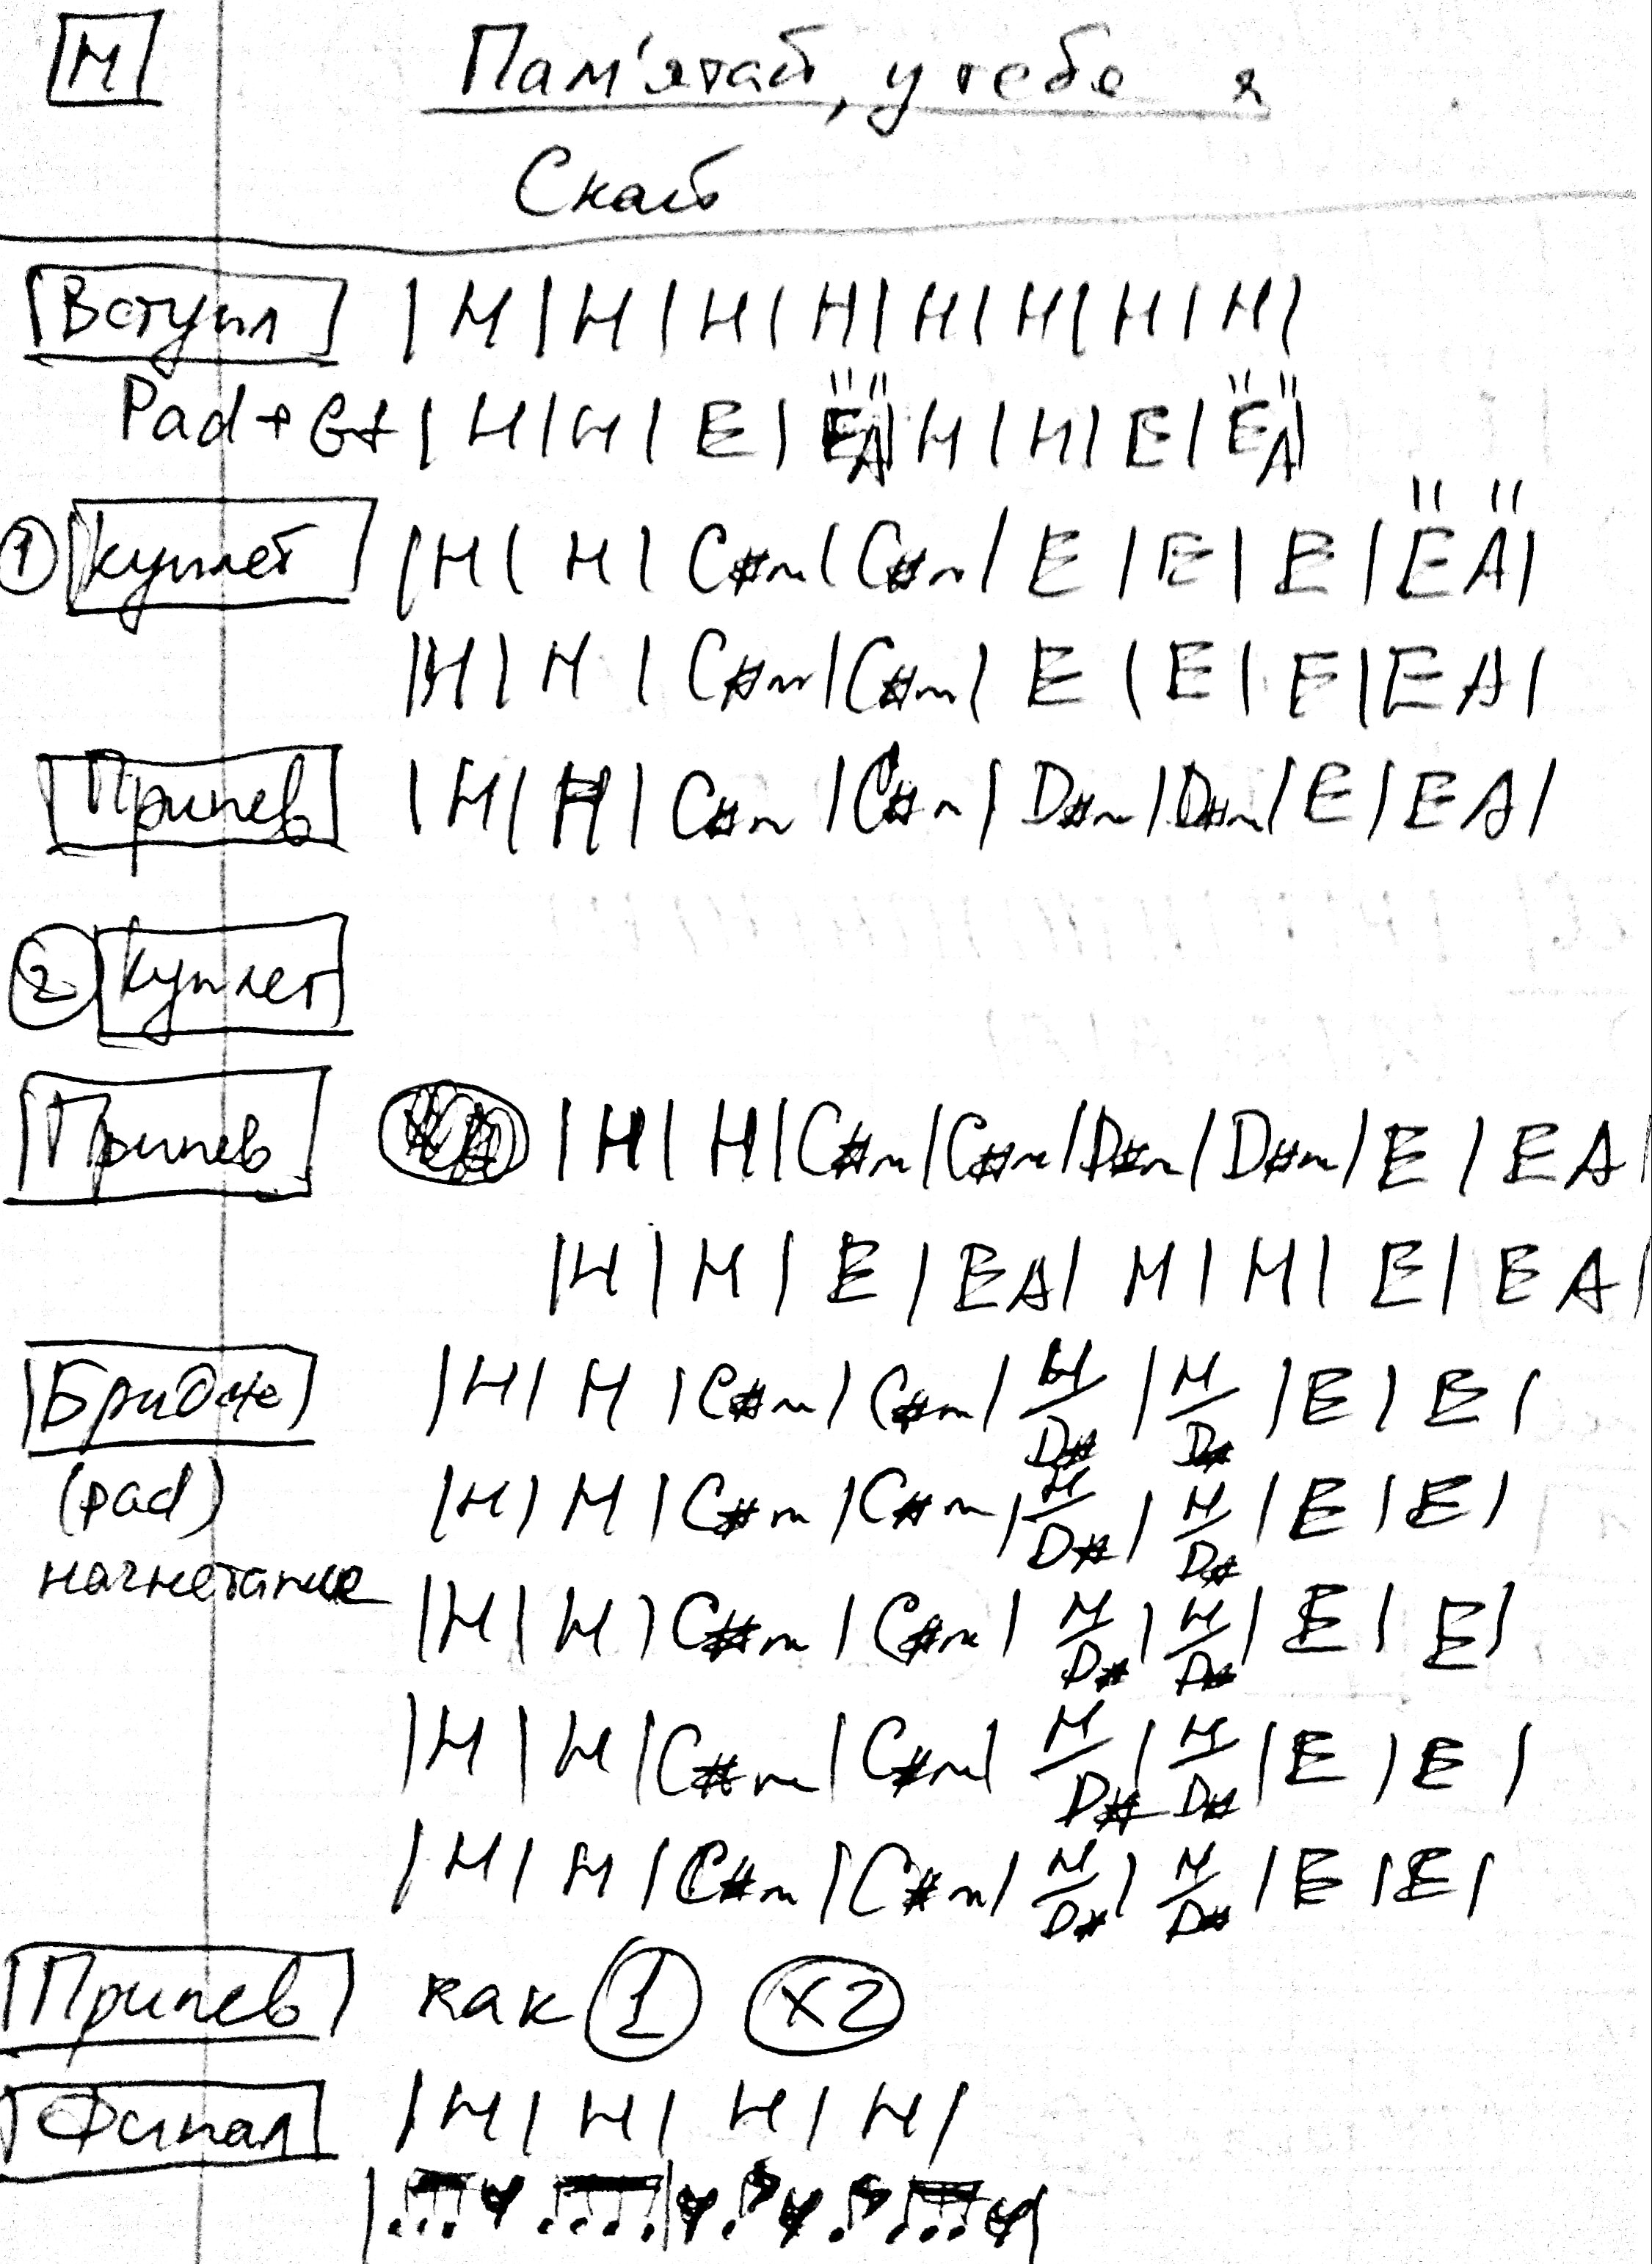 H Пам'ятай, у тебе я
Скай
Вступл | H | H | H | H | H | H | H | H |
Pad + Gt | H | H | E | E A | H | H | E | E A |
1 Куплет | H | H | C#m | C#m | E | E | E | E A |
| H | H | C#m | C#m | E | E | E | E A |
Припев | H | H | C#m | C#m | D#m | D#m | E | E A |
2 Куплет
Припев | H | H | C#m | C#m | D#m | D#m | E | E A |
| H | H | E | E A | H | H | E | E A |
Бридж | H | H | C#m | C#m | H/D# | H/D# | E | E |
(pad) | H | H | C#m | C#m | H/D# | H/D# | E | E |
нагнетание | H | H | C#m | C#m | H/D# | H/D# | E | E |
| H | H | C#m | C#m | H/D# | H/D# | E | E |
| H | H | C#m | C#m | H/D# | H/D# | E | E |
Припев как 1 x2
Финал | H | H | H | H |